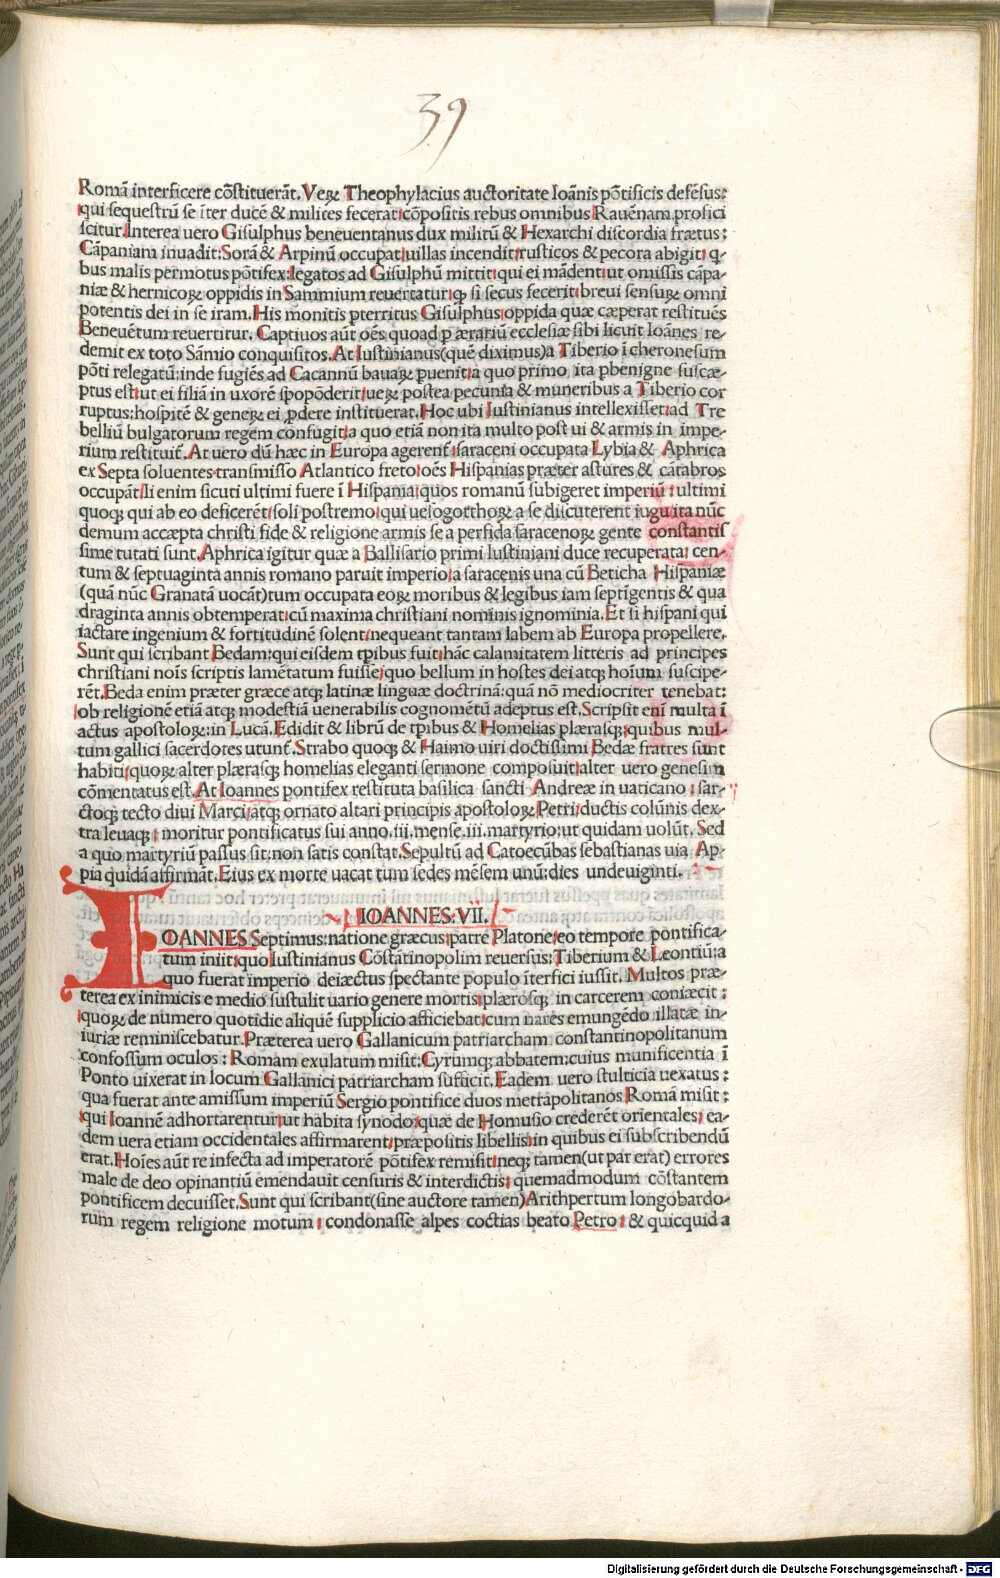 39
Romā interficere cōstituerāt. Veꝝ Theophylacius auctoritate Ioānis pōtificis defēsus:
qui sequestrū se iter ducē & milites fecerat: cōpositis rebus omnibus Rauēnam profici
scitur. Interea uero Gisulphus beneuentanus dux militū & Hexarchi discordia frætus:
Cāpaniam inuadit: Sorā & Arpinū occupat: uillas incendit: rusticos & pecora abigit: q-
bus malis permotus pōtifex: legatos ad Gisulphū mittit: qui ei mādent: ut omissis cāpa-
niæ & hernicoꝝ oppidis in Sammium reuertatur: ꝙ si secus fecerit: breui sensuꝝ omni
potentis dei in se iram. His monitis pterritus Gisulphus: oppida quæ cæperat restituēs
Beneuētum reuertitur. Captiuos aūt oēs quoad p ærariū ecclesiæ sibi licuit Ioānes re-
demit ex toto Sānio conquisitos. At Iustinianus (quē diximus) a Tiberio ī cheronesum
pōti relegatū: inde fugiēs ad Cacannū bauaꝝ puenit: a quo primo ita pbenigne suscæ-
ptus est: ut ei filiā in uxorē spopōderit: ueꝝ postea pecunia & muneribus a Tiberio cor
ruptus: hospitē & geneꝝ ei ꝓdere instituerat. Hoc ubi Iustinianus intellexisset: ad Tre
belliū bulgatorum regem confugit: a quo etiā non ita multo post ui & armis in impe-
rium restituit̄. At uero dū hæc in Europa agerent̄: saraceni occupata Lybia & Aphrica
ex Septa soluentes transmisso Atlantico freto: oēs Hispanias præter astures & cātabros
occupāt: Ii enim sicuti ultimi fuere ī Hispania: quos romanū subigeret imperiū: ultimi
quoqꝫ qui ab eo deficerēt: soli postremo: qui uesogotthoꝝ a se discuterent iugū: ita nūc
demum accæpta christi fide & religione armis se a perfida saracenoꝝ gente constantis
sime tutati sunt. Aphrica igitur quæ a Ballisario primi Iustiniani duce recuperata: cen-
tum & septuaginta annis romano paruit imperio: a saracenis una cū Beticha Hispaniæ
(quā nūc Granatā uocāt) tum occupata eoꝝ moribus & legibus iam septigentis & qua
draginta annis obtemperat: cū maxima christiani nominis ignominia. Et si hispani qui
iactare ingenium & fortitudinē solent: nequeant tantam labem ab Europa propellere.
Sunt qui scribant Bedam: qui eisdem tpibus fuit: hāc calamitatem litteris ad principes
christiani nois scriptis lamētatum fuisse: quo bellum in hostes dei atqꝫ hoium suscipe-
rēt. Beda enim præter græce atqꝫ latinæ linguæ doctrinā: quā nō mediocriter tenebat:
ob religionē etiā atqꝫ modestiā uenerabilis cognomētū adeptus est. Scripsit eni multa ī
actus apostoloꝝ: in Lucā. Edidit & librū de tpibus & Homelias plærasqꝫ: quibus mul-
tum gallici sacerdotes utunt̄. Strabo quoqꝫ & Haimo uiri doctissimi Bedæ fratres sunt
habiti: quoꝝ alter plærasqꝫ homelias eleganti sermone composuit: alter uero genesim
cōmentatus est. At Ioannes pontifex restituta basilica sancti Andreæ in uaticano: sar-
ctoqꝫ tecto diui Marci: atqꝫ ornato altari principis apostoloꝝ Petri: ductis colūnis dex-
tra leuaqꝫ: moritur pontificatus sui anno .iii. mense .iii. martyrio: ut quidam uolūt. Sed
a quo martyriū passus sit: non satis constat. Sepultū ad Catoecūbas sebastianas uia Ap-
pia quidā affirmāt. Eius ex morte uacat tum sedes mēsem unū: dies undeuiginti.
IOANNES: VII.
IOANNES Septimus: natione græcus: patre Platone: eo tempore pontifica-
tum iniit: quo Iustinianus Cōstātinopolim reuersus: Tiberium & Leontiū: a
quo fuerat imperio deiæctus spectante populo īterfici iussit. Multos præ-
terea ex inimicis e medio sustulit uario genere mortis: plærosqꝫ in carcerem coniæcit:
quoꝝ de numero quotidie aliquē supplicio afficiebat: cum nares emungēdo illatæ in-
iuriæ reminiscebatur. Præterea uero Gallanicum patriarcham constantinopolitanum
confossum oculos: Romam exulatum misit: Cyrumqꝫ abbatem: cuius munificentia ī
Ponto uixerat in locum Gallanici patriarcham suffucit. Eadem uero stulticia uexatus:
qua fuerat ante amissum imperiū Sergio pontifice duos metrapolitanos Romā misit:
qui Ioannē adhortarentur: ut habita synodo: quæ de Homusio crederēt orientales: ea-
dem uera etiam occidentales affirmarent: præpositis libellis: in quibus ei subscribendū
erat. Hoies aūt re infecta ad imperatorē pōtifex remisit: neqꝫ tamen (ut par erat) errores
male de deo opinantiū emendauit censuris & interdictis: quemadmodum cōstantem
pontificem decuisset. Sunt qui scribant (sine auctore tamen) Arithpertum longobardo-
rum regem religione motum: condonasse alpes coctias beato Petro: & quicquid a
Digitalisierung gefördert durch die Deutsche Forschungsgemeinschaft - DFG